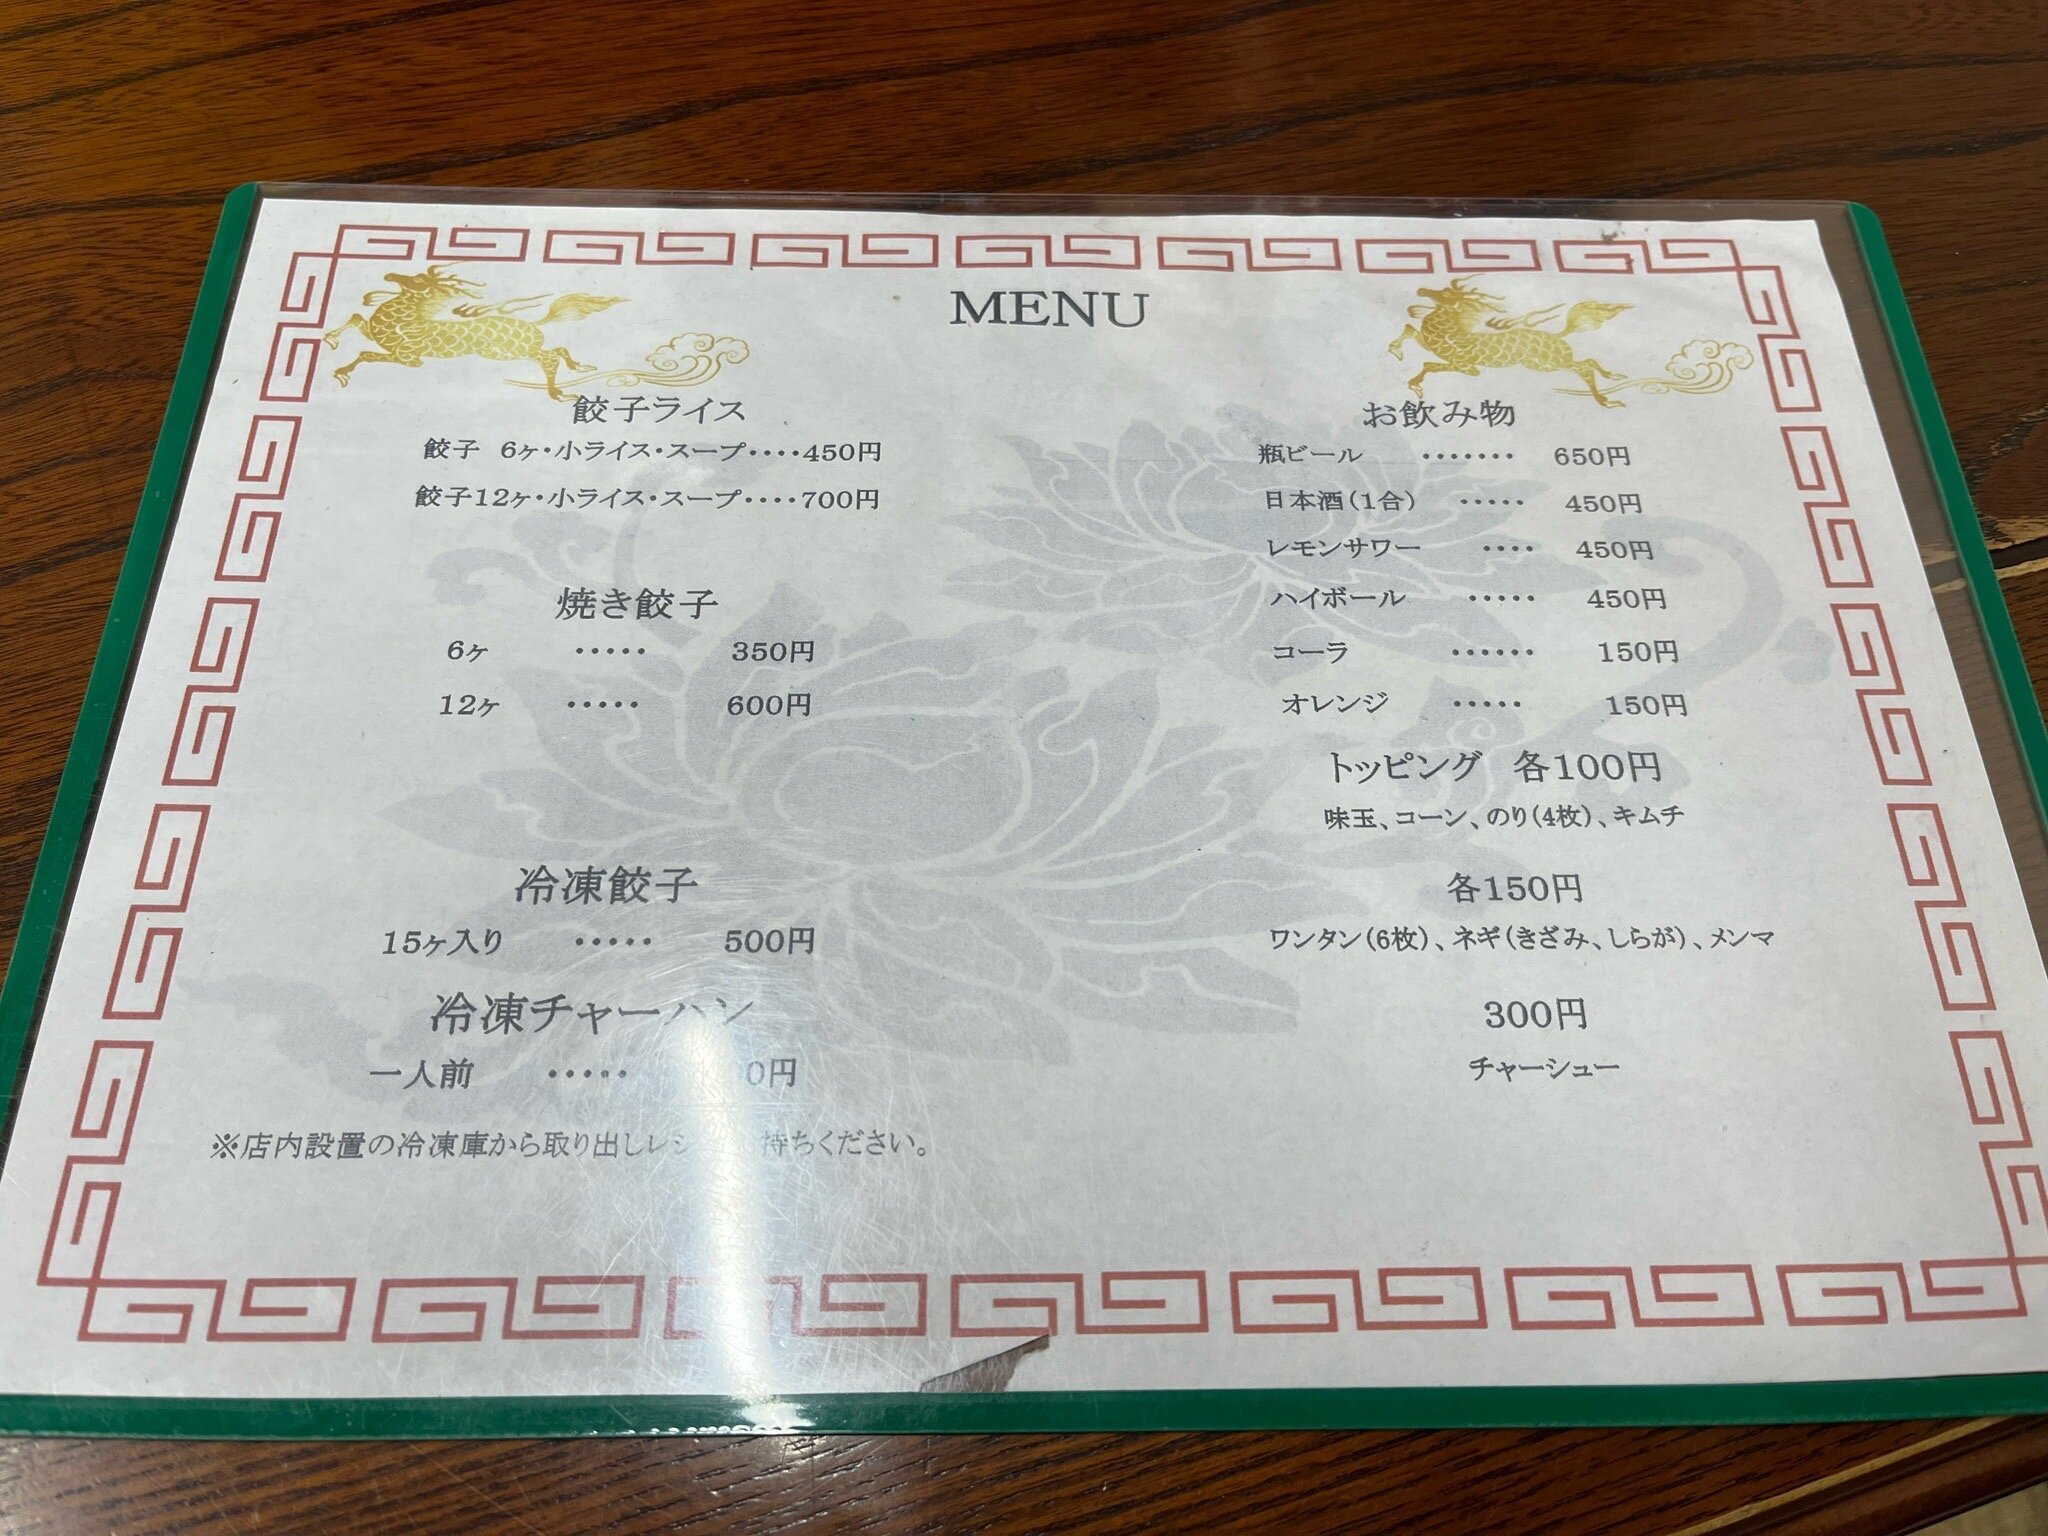 MENU
餃子ライス
餃子 6ヶ・小ライス・スープ････450円
餃子12ヶ・小ライス・スープ････700円
焼き餃子
6ヶ ・・・・・ 350円
12ヶ ・・・・・ 600円
冷凍餃子
15ヶ入り ・・・・・ 500円
冷凍チャーハン
一人前 ・・・・・
※店内設置の冷凍庫から取り出し 持ちください。
お飲み物
瓶ビール ・・・・・・・ 650円
日本酒(1合) ・・・・・ 450円
レモンサワー ・・・・ 450円
ハイボール ・・・・・ 450円
コーラ ・・・・・・ 150円
オレンジ ・・・・・ 150円
トッピング 各100円
味玉、コーン、のり(4枚)、キムチ
各150円
ワンタン(6枚)、ネギ(きざみ、しらが)、メンマ
300円
チャーシュー